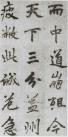 而中道崩殂今
天下三分益州
疲弊此誠危急